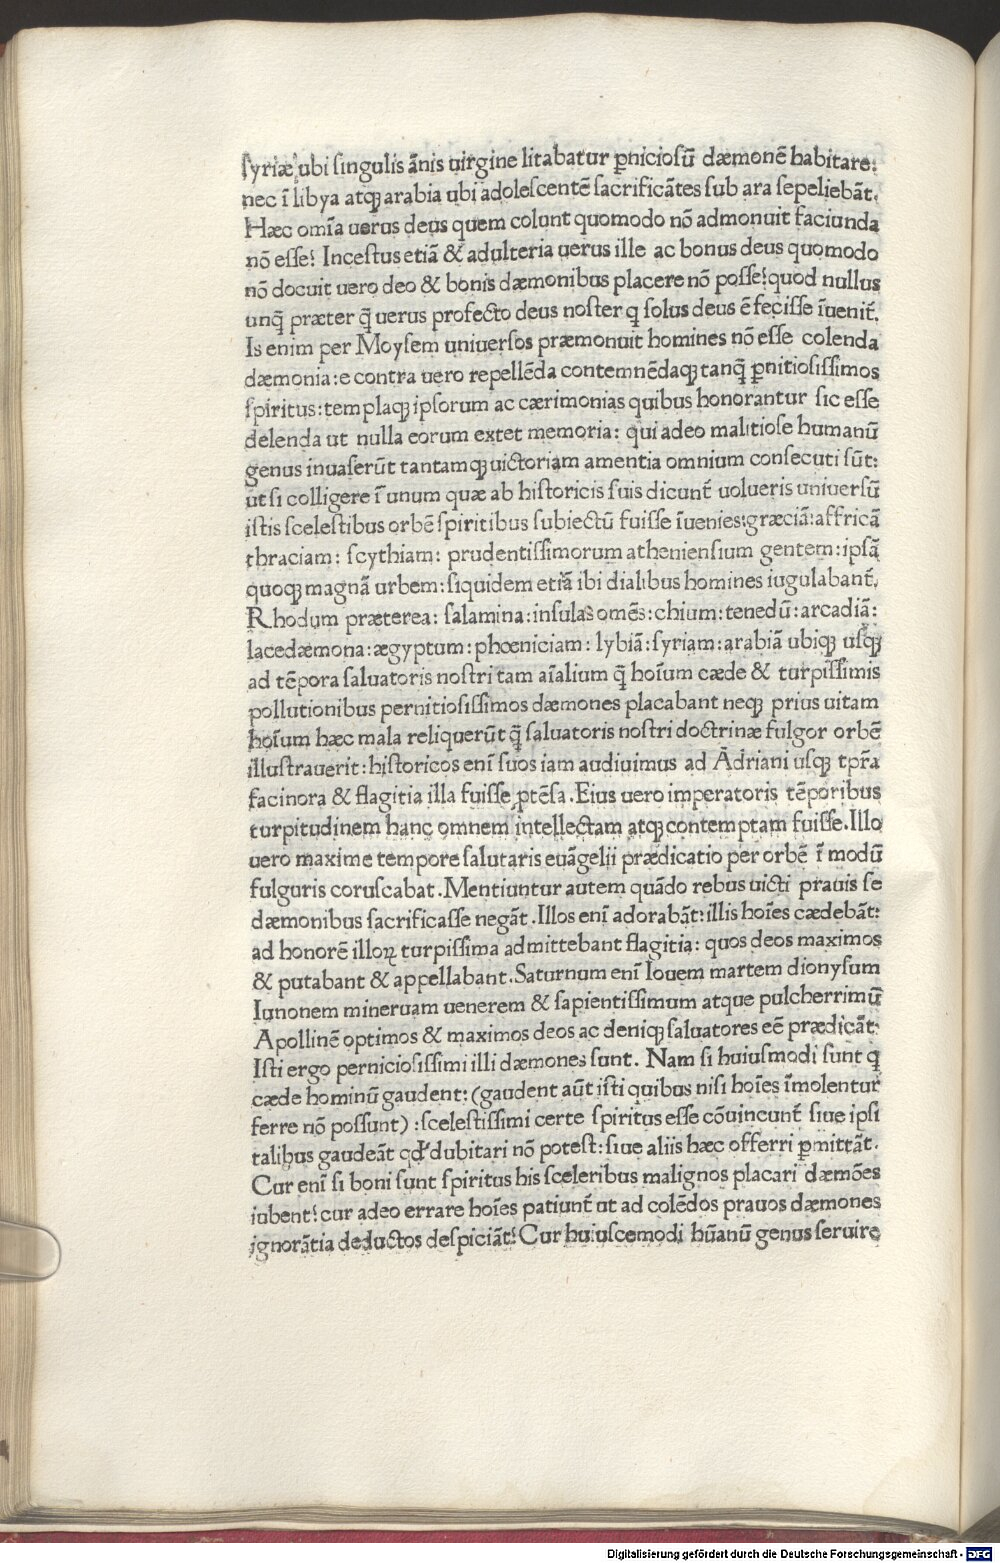 ſyriæ ubi ſingulis ānis uirgine litabatur ꝑnicioſū dæmonē habitare:
nec ī libya atqꝫ arabia ubi adoleſcentē ſacrificātes ſub ara ſepeliebāt.
Hæc om̄ia uerus deus quem colunt quomodo nō admonuit faciunda
nō eſſe? Inceſtus etiā & adulteria uerus ille ac bonus deus quomodo
nō docuit uero deo & bonis dæmonibus placere nō poſſe? quod nullus
unq̄ præter q̄ uerus profecto deus noſter q ſolus deus ē feciſſe īuenit̄.
Is enim per Moyſem uniuerſos præmonuit homines nō eſſe colenda
dæmonia: e contra uero repellēda contemnēdaqꝫ tanq̄ ꝑnitioſiſſimos
ſpiritus: templaqꝫ ipſorum ac cærimonias quibus honorantur ſic eſſe
delenda ut nulla eorum extet memoria: qui adeo malitioſe humanū
genus inuaſerūt tantamqꝫ uictoriam amentia omnium conſecuti ſūt:
ut ſi colligere ī unum quæ ab hiſtoricis ſuis dicunt̄ uolueris uniuerſū
iſtis ſceleſtibus orbē ſpiritibus ſubiectū fuiſſe īuenies: græciā: affricā
thraciam: ſcythiam: prudentiſſimorum athenienſium gentem: ipſā
quoqꝫ magnā urbem: ſiquidem etiā ibi dialibus homines iugulabant̄.
Rhodum præterea: ſalamina: inſulas omēs: chium: tenedū: arcadiā:
lacedæmona: ægyptum: phœniciam: lybiā: ſyriam: arabiā ubiqꝫ uſqꝫ
ad tēpora ſaluatoris noſtri tam aīalium q̄ hoīum cæde & turpiſſimis
pollutionibus pernitioſiſſimos dæmones placabant neqꝫ prius uitam
hoīum hæc mala reliquerūt q̄ ſaluatoris noſtri doctrinæ fulgor orbē
illuſtrauerit: hiſtoricos enī ſuos iam audiuimus ad Adriani uſqꝫ tp̄ra
facinora & flagitia illa fuiſſe ꝓtēſa. Eius uero imperatoris tēporibus
turpitudinem hanc omnem intellectam atqꝫ contemptam fuiſſe. Illo
uero maxime tempore ſalutaris euāgelii prædicatio per orbē ī modū
fulguris coruſcabat. Mentiuntur autem quādo rebus uicti prauis ſe
dæmonibus ſacrificaſſe negāt. Illos enī adorabāt: illis hoīes cædebāt:
ad honorē illoꝝ turpiſſima admittebant flagitia: quos deos maximos
& putabant & appellabant. Saturnum enī Iouem martem dionyſum
Iunonem mineruam uenerem & ſapientiſſimum atque pulcherrimū
Apollinē optimos & maximos deos ac deniqꝫ ſaluatores eē prædicāt.
Iſti ergo pernicioſiſſimi illi dæmones ſunt. Nam ſi huiuſmodi ſunt q
cæde hominū gaudent: (gaudent aūt iſti quibus niſi hoīes īmolentur
ferre nō poſſunt): ſceleſtiſſimi certe ſpiritus eſſe cōuincunt̄ ſiue ipſi
talibus gaudeāt qd̓ dubitari nō poteſt: ſiue aliis hæc offerri ꝑmittāt.
Cur enī ſi boni ſunt ſpiritus his ſceleribus malignos placari dæmōes
iubent? cur adeo errare hoīes patiunt̄ ut ad colēdos prauos dæmones
ignorātia deductos deſpiciāt? Cur huiuſcemodi hūanū genus ſeruire
Digitalisierung gefördert durch die Deutsche Forschungsgemeinschaft - DFG